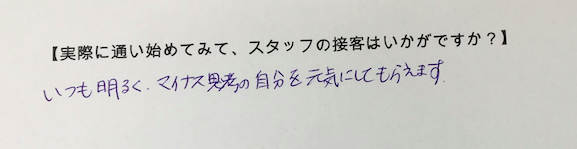 【実際に通い始めてみて、スタッフの接客はいかがですか？】
いつも明るく、マイナス思考の自分を元気にしてもらえます。